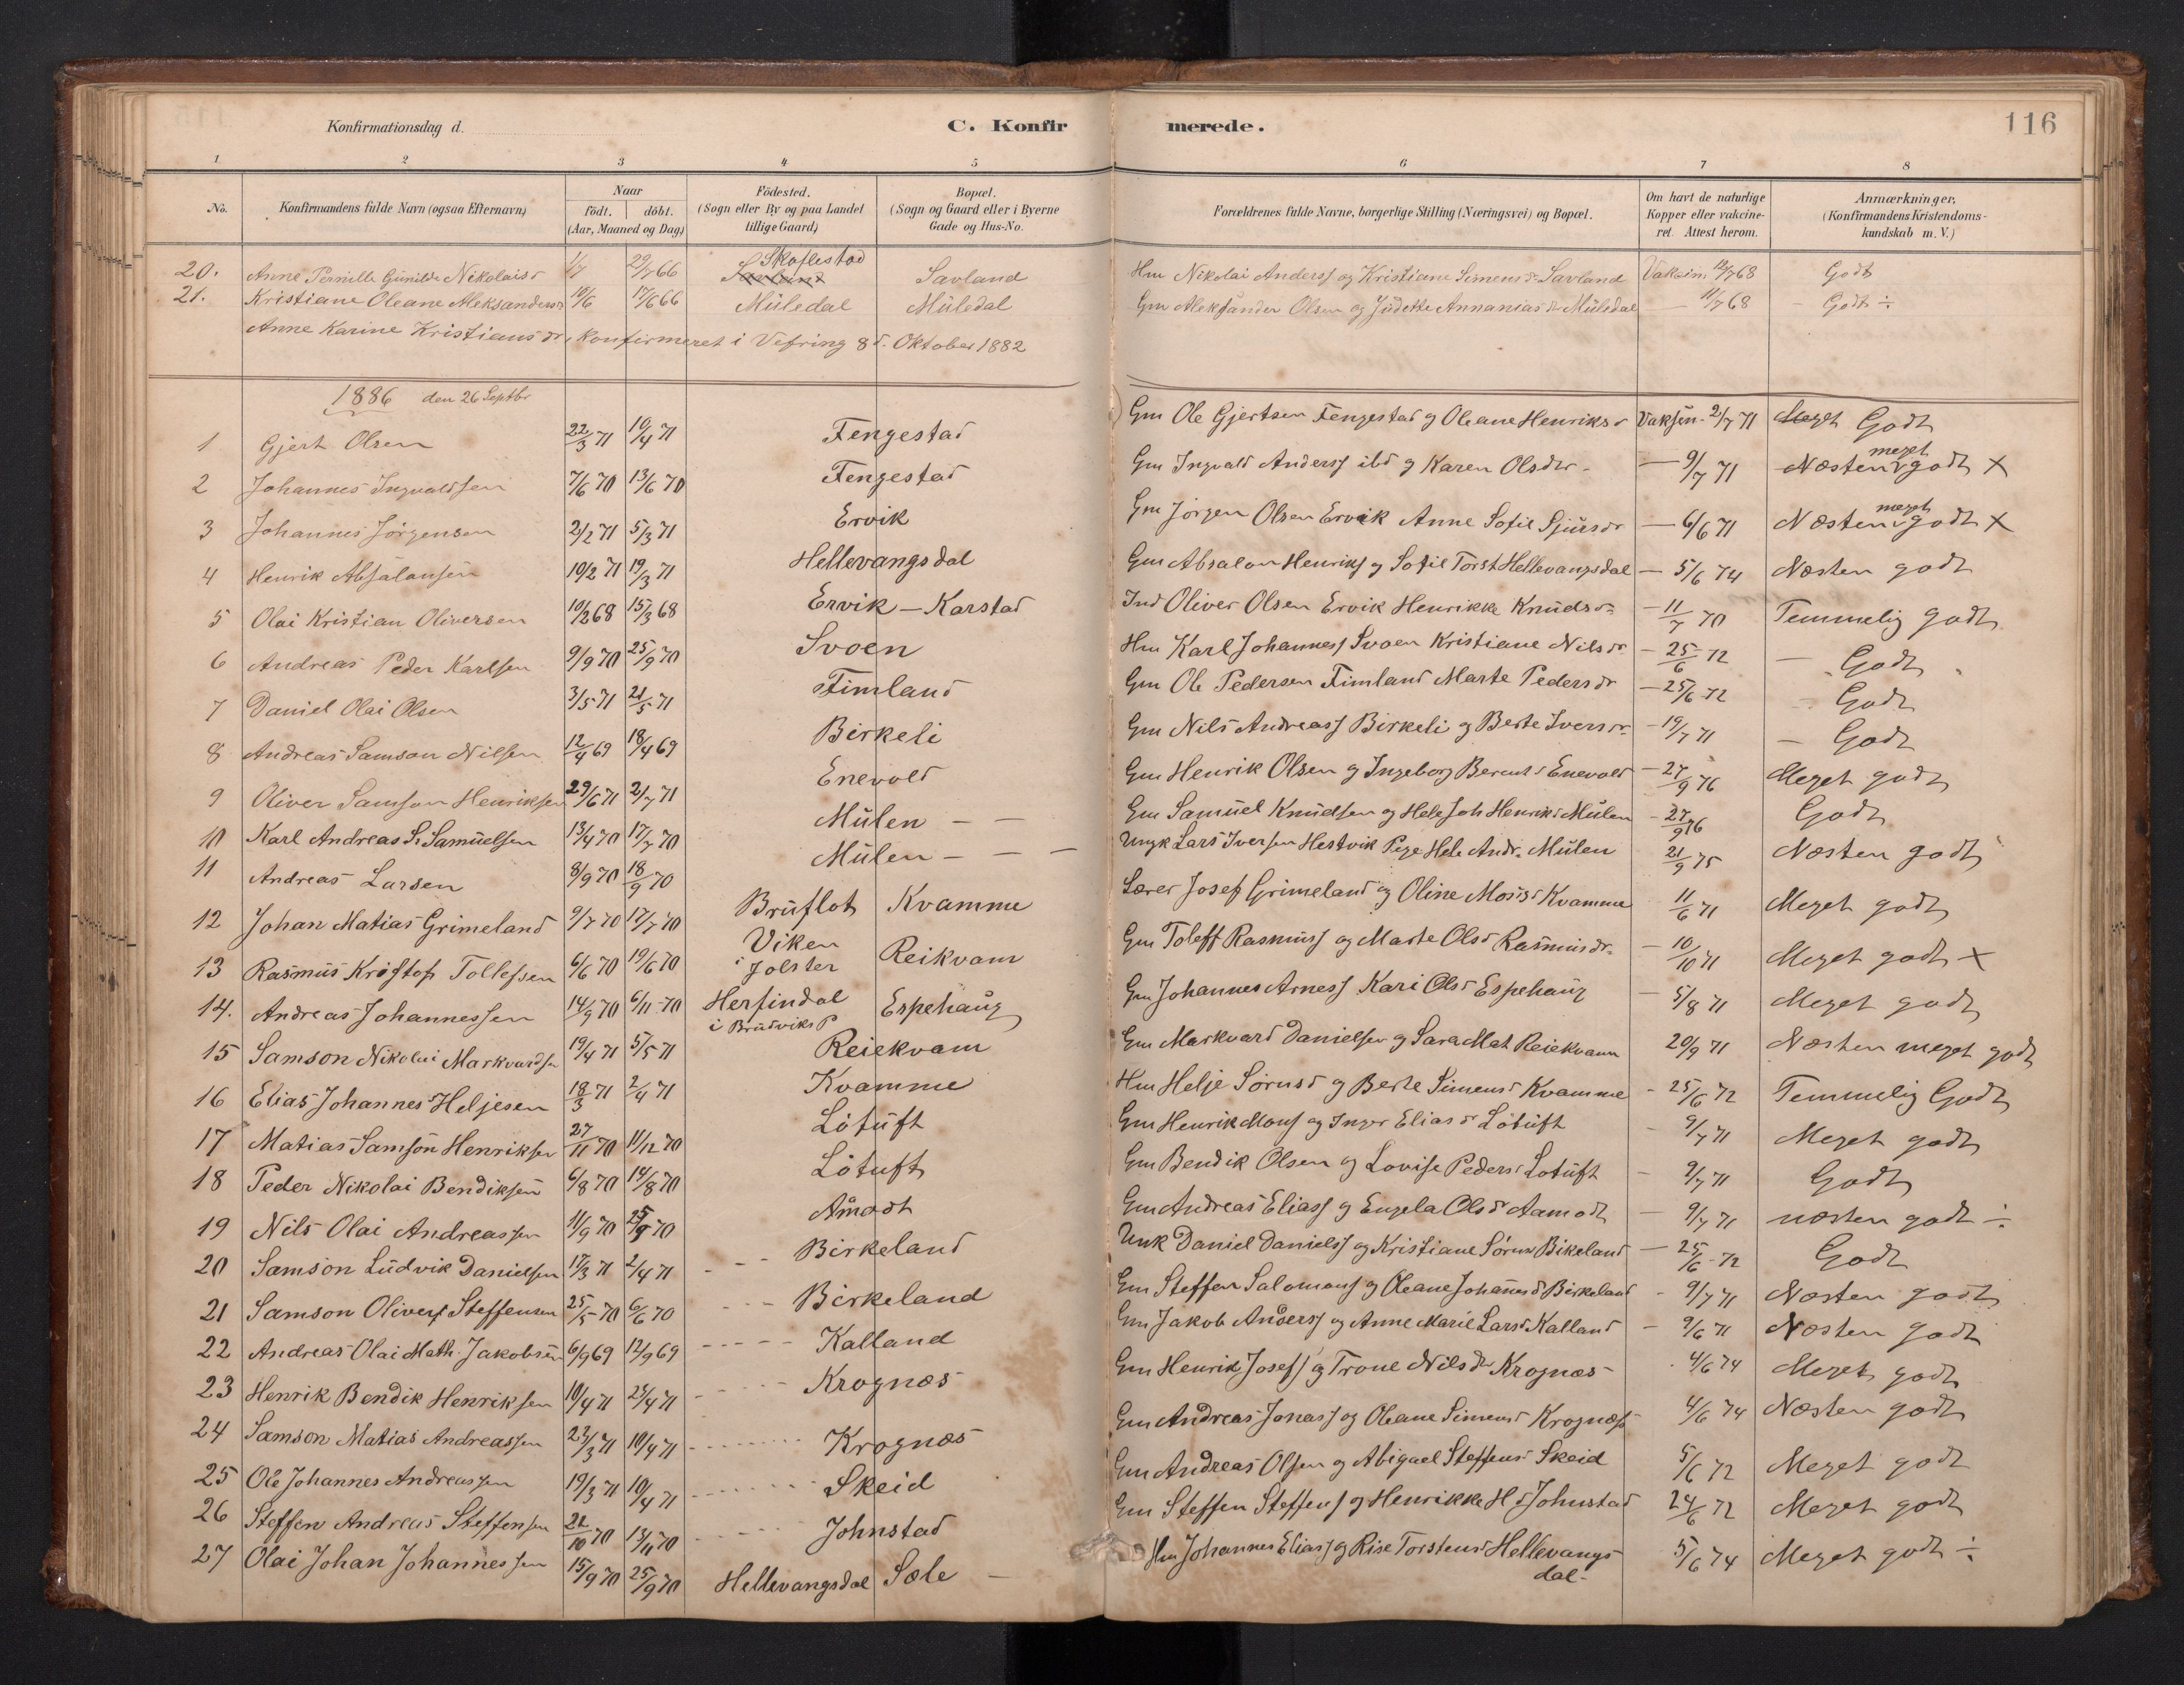 Konfirmationsdag d. C. Konfir merede. 116
1 2 3 4 5 6 7 8
No. Konfirmandens fulde Navn (ogsaa Efternavn) Naar födt. döbt. (Aar, Maaned og Dag) Födested. (Sogn eller By og paa Landet tillige Gaard) Bopæl. (Sogn og Gaard eller i Byerne Gade og Hus-No. Forældrenes fulde Navne, borgerlige Stilling (Næringsvei) og Bopæl. Om havt de naturlige Kopper eller vakcineret. Attest herom. Anmærkninger, (Konfirmandens Kristendomskundskab m. V.)
20. Anne Pernille Gunilde Nikolaisd 1/7 29/7 66 Skaflestad Savland Hm Nikolai Anderss og Kristiane Simensd Savland Vakcin. 12/7 68 Godt
21. Kristiane Oleane Aleksandersd 10/6 17/6 66 Müledal Müledal Gm Aleksander Olsen og Judette Annaniasd Müledal 11/7 68 - Godt ÷
Anne Karine Kristiansdr, konfirmeret i Vefring 8d. Oktober 1882
1886 den 26 Septbr
1 Gjert Olsen 22/3 71 10/4 71 Fengestad Gm Ole Gjertsen Fengestad g Oleane Henriksd Vaksin. 2/7 71 Meget Godt
2 Johannes Ingvaldsen 7/6 70 13/6 70 Fengestad Gm Ingvald Anderss ibd g Karen Olsdtr - 9/7 71 Næsten meget godt X
3 Johannes Jörgensen 2/2 71 5/3 71 Ervik Gm Jörgen Olsen Ervik Anne Sofie Sjürsdr - 6/6 71 Næsten meget godt X
4 Henrik Absalonsen 10/2 71 19/3 71 Hellevangsdal Gm Absalon Henriks g Sofie Torst Hellevangsdal - 5/6 74 Næsten godt
5 Olai Kristian Oliversen 10/2 68 15/3 68 Ervik - Karstad Ind Oliver Olsen Ervik Henrikke Knüdsdr - 11/7 70 Temmelig godt
6 Andreas Peder Karlsen 9/9 70 25/9 70 Svoen Hm Karl Johanness Svoen Kristiane Nilsdr - 25/6 72 - Godt
7 Daniel Olai Olsen 3/5 71 21/5 71 Fimland Gm Ole Pedersen Fimland Marte Pedersdr - 25/6 72 - Godt
8 Andreas Samson Nilsen 12/4 69 18/4 69 Birkeli Gm Nils Andreass Birkeli g Berte Iversdr - 19/7 71 - Godt
9 Oliver Samson Henriksen 29/6 71 2/7 71 Enevold Gm Henrik Olsen g Ingeborg Berentsd Enevold - 27/9 76 Meget godt
10 Karl Andreas S. Samüelsen 13/4 70 17/7 70 Mülen - - Gm Samüel Knüdsen g Hele Joh Henriksd Mülen - 27/9 76 Godt
11 Andreas Larsen 8/9 70 18/9 70 Mülen - - - Ungk Lars Iversen Hestvik Pige Hele Andr. Mülen 21/9 75 Næsten godt
12 Johan Matias Grimeland 9/7 70 17/7 70 Brüflot Kvamme Lærer Josef Grimeland og Oline Mosesd Kvamme 11/6 71 Meget godt
13 Rasmüs Kristof Tollefsen 6/6 70 19/6 70 Viken i Jolster Reikvam Gm Toleff Rasmüss og Marte Olsd Rasmüsdr. - 10/10 71 Meget godt X
14. Andreas Johannessen 14/9 70 6/11 70 Herfindal i Brüdviks P Espehaug Gm Johannes Arness Kari Olsd Espehaüg - 5/8 71 Meget godt
15 Samson Nikolai Markvardsn 19/4 71 5/5 71 Reiekvam Gm Markvard Danielsen g Sara Mat Reiekvam 20/9 71 Næsten meget godt
16 Elias Johannes Heljesen 18/3 71 2/4 71 Kvamme Hm Helje Sörnss g Berte Simensd Kvamme - 25/6 72 Temmelig Godt
17 Matias Samson Henriksen 27/11 70 11/12 70 Lötüft Gm Henrik Mons og Inger Eliasd Lötüft - 9/7 71 Meget godt
18 Peder Nikolai Bendiksen 6/8 70 14/8 70 Lötuft Gm Bendik Olsen og Lovise Pedersd Lötüft - 9/7 71 Godt
19 Nils Olai Andreassen 11/9 70 25/9 70 Åmodt Gm Andreas Eliass g Engela Olsdr Aamodt - 9/7 71 næsten godt ÷
20 Samson Lüdvik Danielsen 17/3 71 2/4 71 - - - Birkeland Unk Daniel Daniels g Kristiane Sörensd Bikeland - 25/6 72 Godt
21 Samson Oliver Steffensen 25/5 70 6/6 70 - - - Birkeland Gm Steffen Salomons g Oleane Johannesd Birkeland - 9/7 71 Næsten godt
22 Andreas Olai Math. Jakobsen 6/9 69 12/9 69 - - - - Kalland Gm Jakob Anderss og Anne Marie Larsd Kalland - 9/6 71 Næsten godt
23 Henrik Bendik Henriksen 10/4 71 23/4 71 Krognæs Gm Henrik Josefs g Trone Nilsdr Krognæs 4/6 74 Meget godt
24 Samson Matias Andreassen 23/3 71 10/4 71 Krognæs Gm Andreas Jonass og Oleane Simensd Krognæs 4/6 74 Næsten godt
25 Ole Johannes Andreassen 19/3 71 10/4 71 Skeid Gm Andreas Olsen og Abigael Steffensd Skeid 5/6 72 Meget godt
26 Steffen Andreas Steffensen 21/10 70 13/11 70 Johnstad Gm Steffen Steffens g Henrikke H d Johnstad 24/6 72 Meget godt
27 Olai Johan Johannessen 15/9 70 25/9 70 Hellevangsdal Sæle - Hm Johannes Eliass g Rise Torstensd Hellevangsdal- 5/6 74 Meget godt ÷